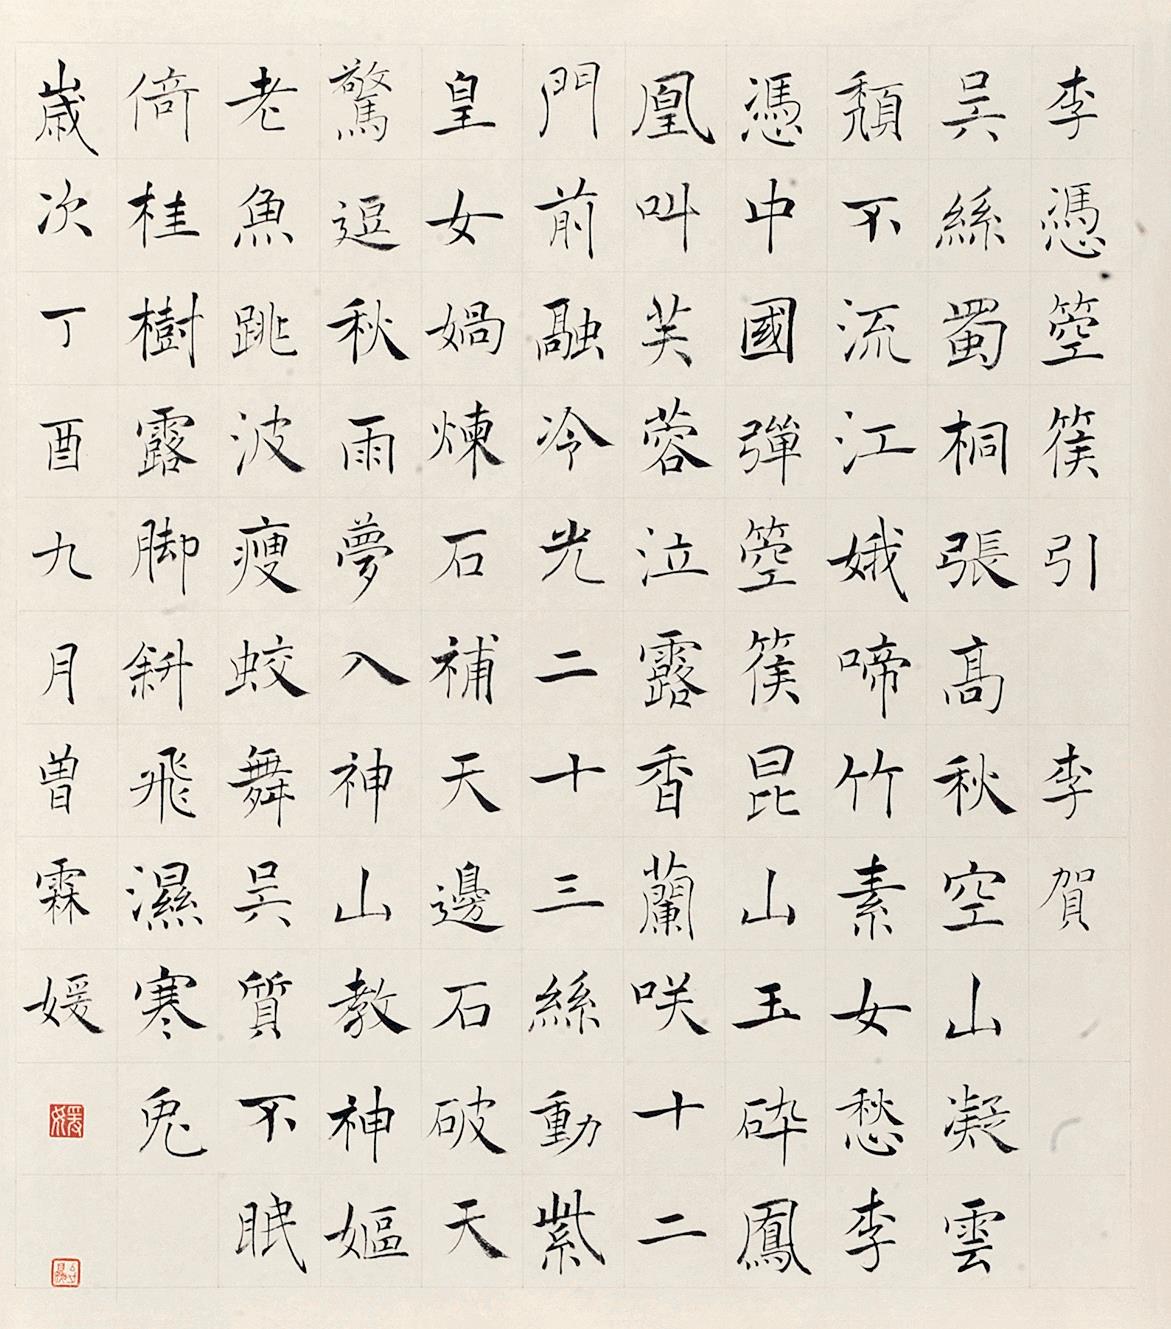 李慿箜篌引 李賀
吴絲蜀桐張髙秋空山凝雲
頽不流江娥啼竹素女愁李
慿中國彈箜篌昆山玉砕鳳
凰叫芙蓉泣露香蘭咲十二
門前融冷光二十三絲動紫
皇女媧煉石補天邊石破天
驚逗秋雨夢入神山教神嫗
老魚跳波瘦蛟舞吴質不眠
倚桂樹露脚斜飛濕寒兔
歲次丁酉九月曾霖媛